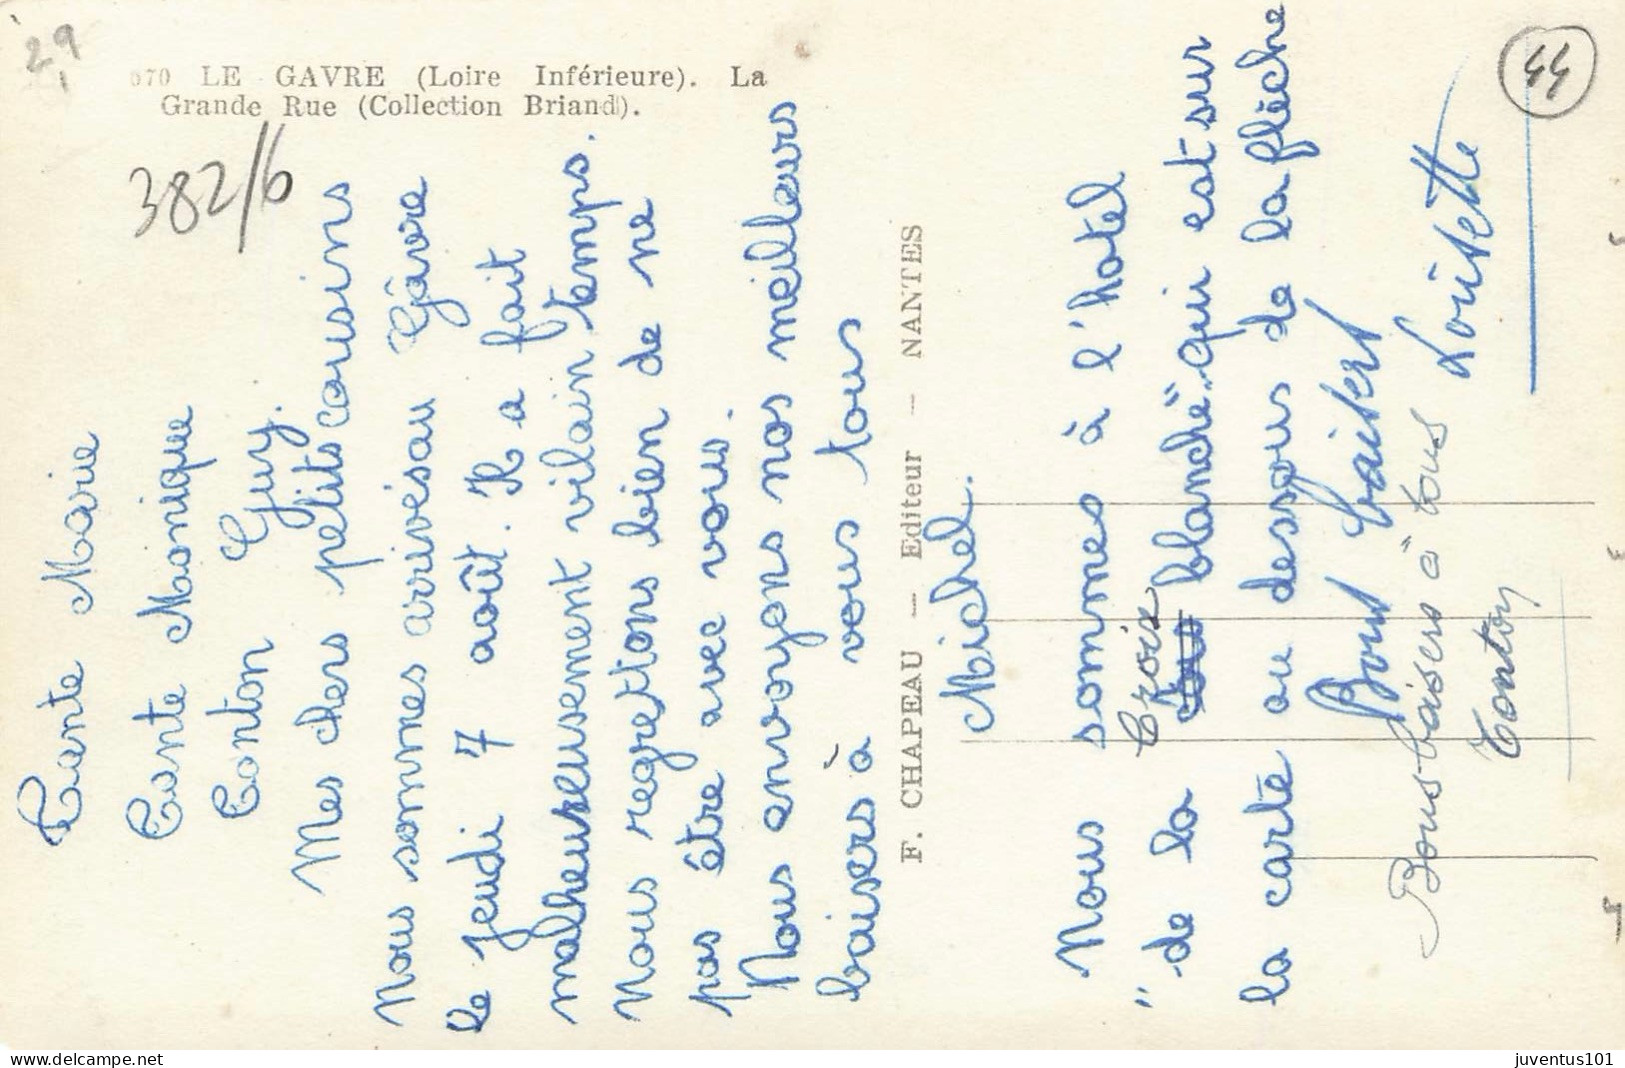 29
070 LE GAVRE (Loire Inférieure). La
Grande Rue (Collection Briand).
382/6
44
Tante Marie
Tante Monique
Tonton Guy.
Mes chers petits cousins
Nous sommes arrivés au Gâvre
le jeudi 7 août. Il a fait
malheureusement vilain temps.
Nous regrettons bien de ne
pas être avec vous.
Nous envoyons nos meilleurs
baisers à vous tous
F. CHAPEAU — Editeur — NANTES
Michel.
Nous sommes à l'hotel
Croix
"de la blanche" qui est sur
la carte au dessous de la flèche
Bons baisers
Bons baisers à tous
Louisette
Tonton
www.delcampe.net
juventus101